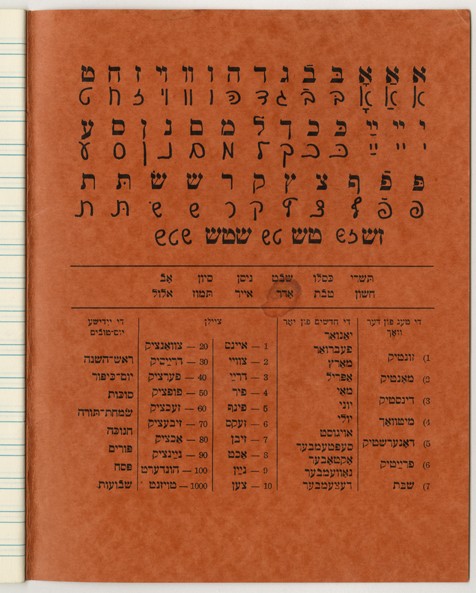 א אַ אָ בּ בֿ ג ד ה ו וו וי ז ח ט
א אַ אָ בּ בֿ ג ד ה ו וו וי ז ח ט
י יי ײַ כּ כ ך ל מ ם נ ן ס ע
י יי ײַ כּ כ ך ל מ ם נ ן ס ע
פּ פֿ ף צ ץ ק ר ש שׂ תּ ת
פּ פֿ ף צ ץ ק ר ש שׂ תּ ת
זש זש טש טש שטש שטש
תשרי כסלו שבט ניסן סיון אב
חשון טבת אדר אייר תמוז אלול
די טעג פון דער
וואָך
1) זונטיק
2) מאָנטיק
3) דינסטיק
4) מיטוואָך
5) דאָנערשטיק
6) פרייטיק
7) שבת
די חדשים פון יאָר
יאַנואַר
פעברואַר
מאַרץ
אַפּריל
מאַי
יוני
יולי
אויגוסט
סעפּטעמבער
אָקטאָבער
נאָוועמבער
דעצעמבער
ציילן
1 — איינס
2 — צוויי
3 — דריי
4 — פיר
5 — פינף
6 — זעקס
7 — זיבן
8 — אַכט
9 — ניין
10 — צען
20 — צוואַנציק
30 — דרייסיק
40 — פערציק
50 — פופציק
60 — זעכציק
70 — זיבעציק
80 — אַכציק
90 — ניינציק
100 — הונדערט
1000 — טויזנט
די יידישע
יום־טובים
ראש־השנה
יום־כיפור
סוכות
שמחת־תורה
חנוכה
פורים
פסח
שבועות